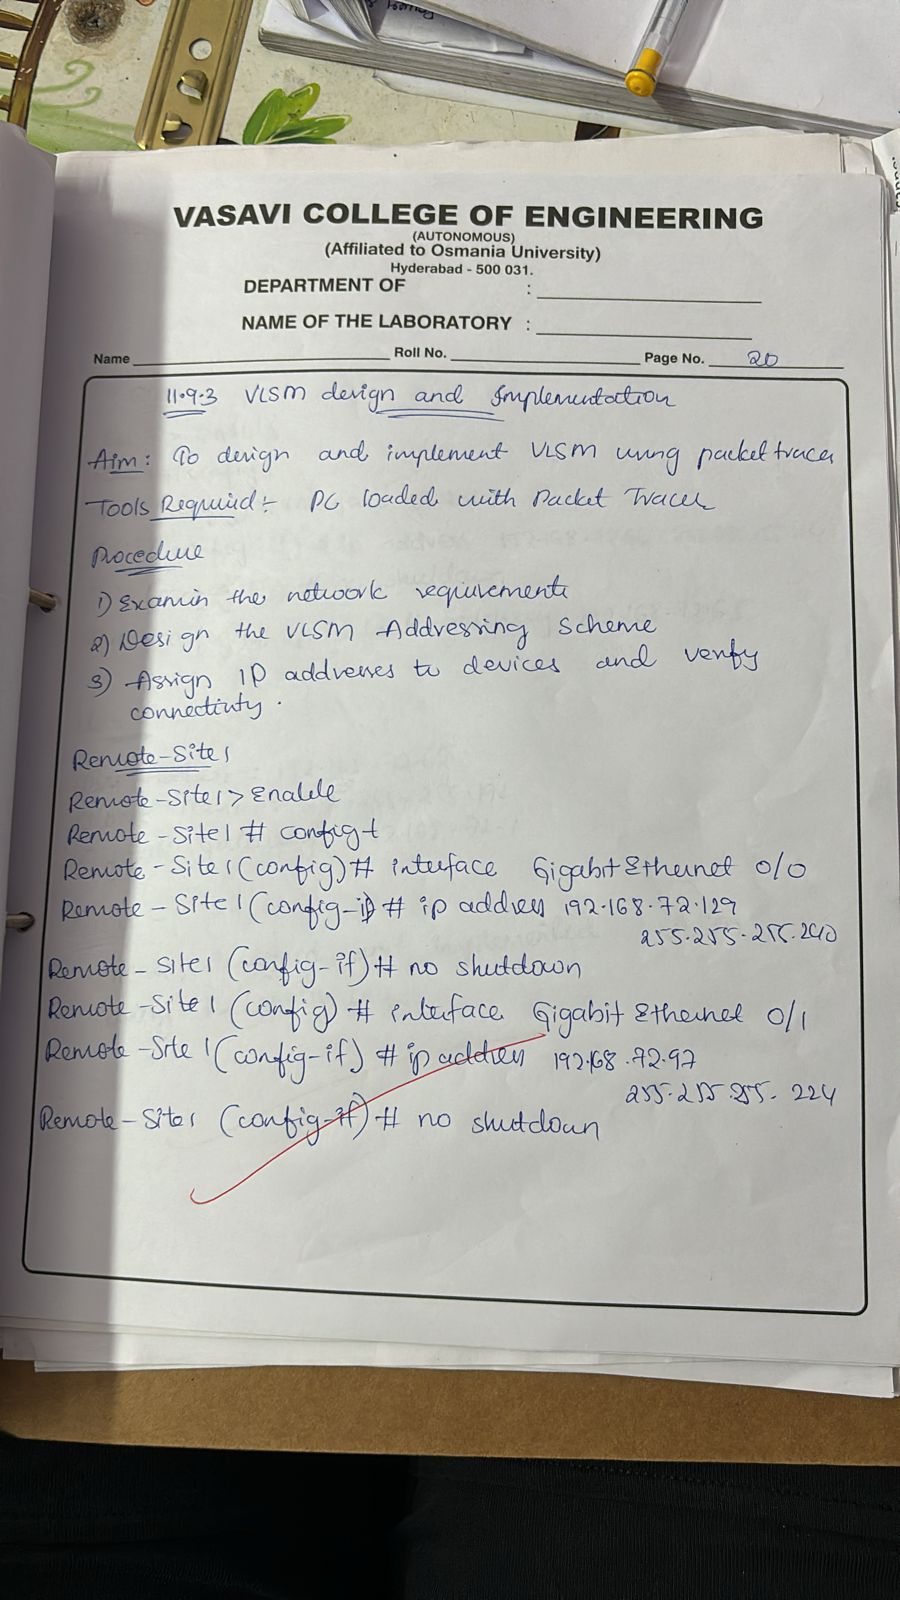 VASAVI COLLEGE OF ENGINEERING
(AUTONOMOUS)
(Affiliated to Osmania University)
Hyderabad - 500 031.
DEPARTMENT OF :
NAME OF THE LABORATORY :
Name Roll No. Page No. 20
11.9.3 VLSM design and Implementation
Aim: To design and implement VLSM using packet tracer
Tools Required :- PC loaded with Packet Tracer
Procedure
1) Examin the network requirements
2) Design the VLSM Addressing Scheme
3) Assign IP addresses to devices and verify
connectivity.
Remote-Site1
Remote-Site1> Enable
Remote-Site1 # config t
Remote-Site1(config)# interface Gigabit Ethernet 0/0
Remote-Site1(config-if)# ip address 192.168.72.129
255.255.255.240
Remote-Site1 (config-if)# no shutdown
Remote-Site1 (config)# interface Gigabit Ethernet 0/1
Remote-Site1(config-if) # ip address 192.168.72.97
255.255.255.224
Remote-Site1 (config-if)# no shutdown